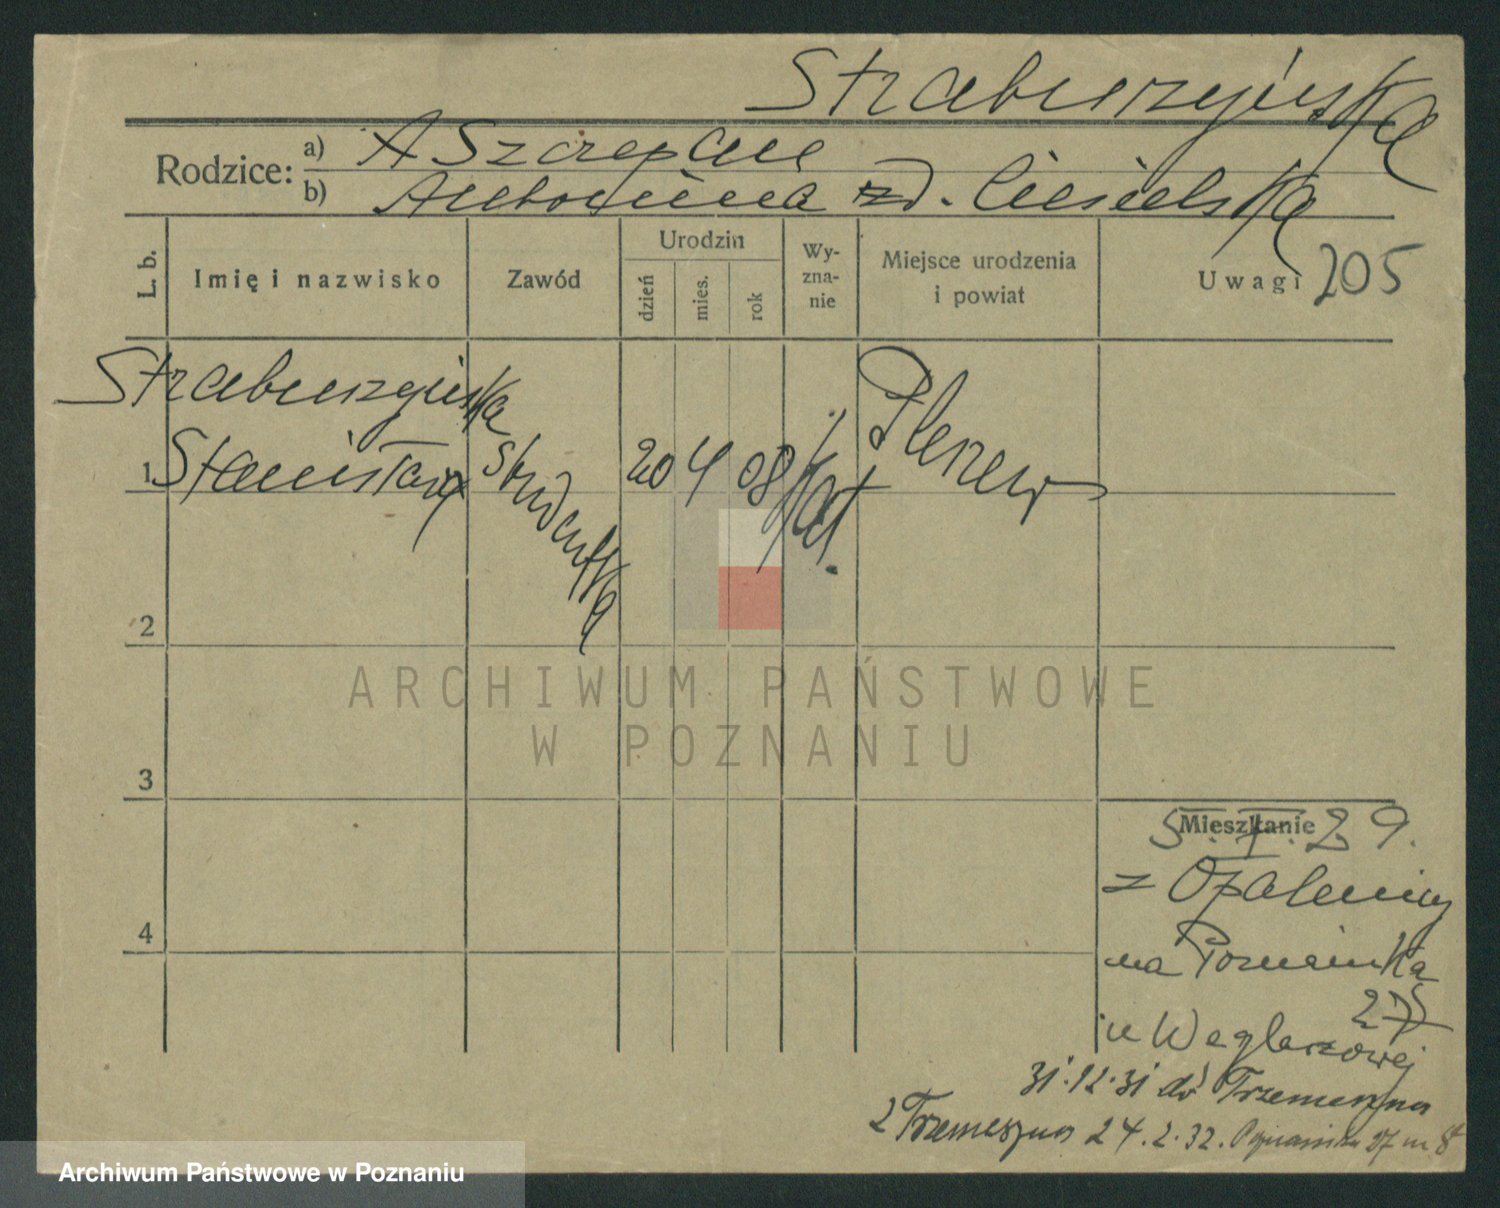 Straburzyńska
Rodzice: a) A Szczepan
b) Antonina zd. Ciesielska
L. b.
Imię i nazwisko
Zawód
Urodzin
dzień
mies.
rok
Wy-
zna-
nie
Miejsce urodzenia
i powiat
Uwagi 205
Straburzyńska
1 Stanisława studentka 20 4 08 kat. Pleszew
2
3
4
Mieszkanie
5. I. 29.
z Opalenicy
na Poznańska
27
u Węglarzowej
31.12.31 do Trzemeszna
z Trzemeszna 24.2.32. Poznańska 27 m. 8
ARCHIWUM PAŃSTWOWE
W POZNANIU
Archiwum Państwowe w Poznaniu